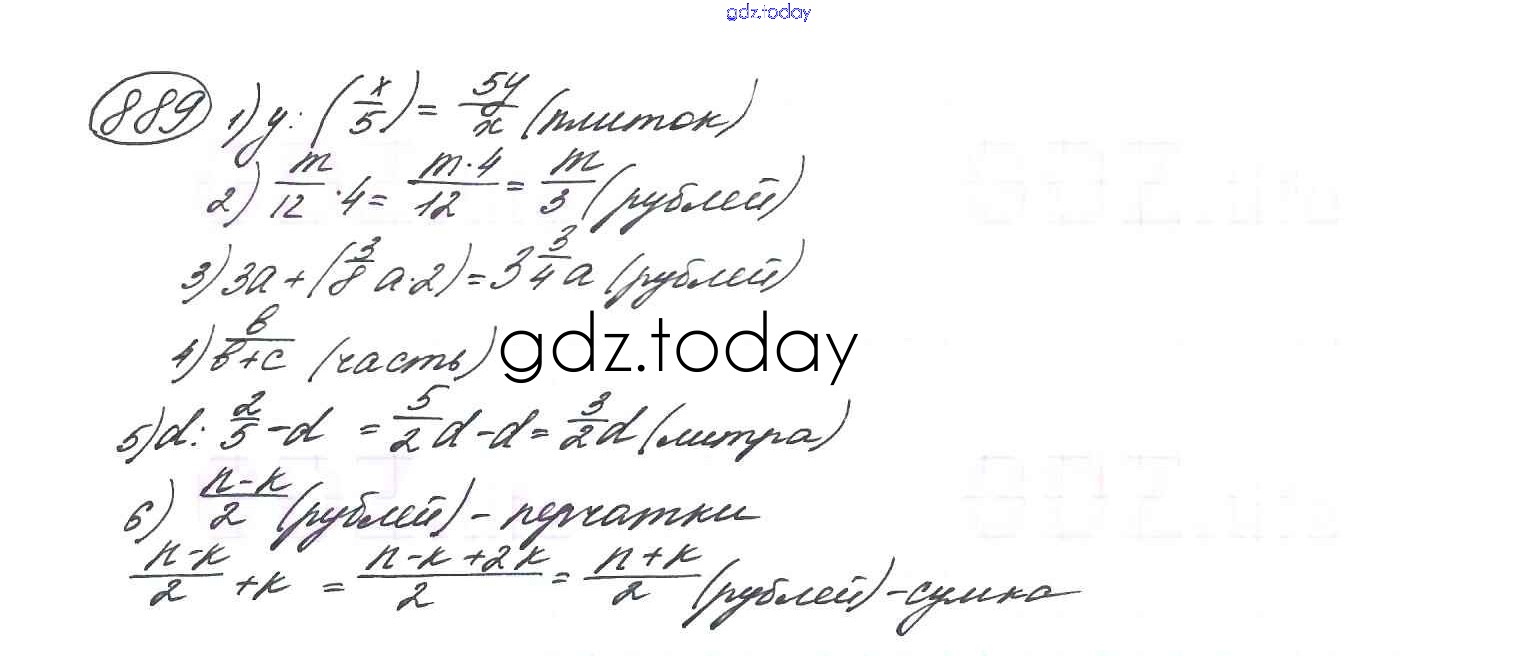 gdz.today
889 1) y : (x/5) = 5y/x (плиток)
2) m/12 · 4 = m·4/12 = m/3 (рублей)
3) 3a + (3/8 a · 2) = 3 3/4 a (рублей)
4) b/b+c (часть)
gdz.today
5) d : 2/5 - d = 5/2 d - d = 3/2 d (литра)
6) n-k/2 (рублей) - перчатки
n-k/2 + k = n-k+2k/2 = n+k/2 (рублей) - сумка